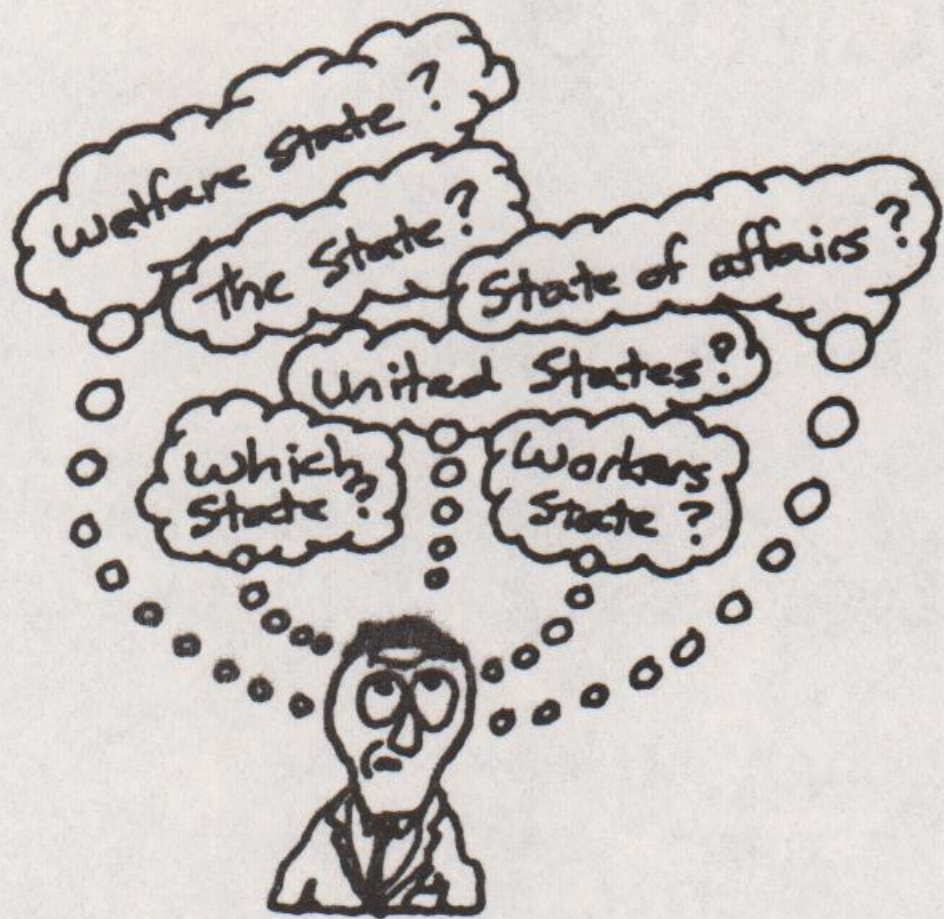 Welfare State?
The State?
State of affairs?
United States?
Which
State?
Workers
State?